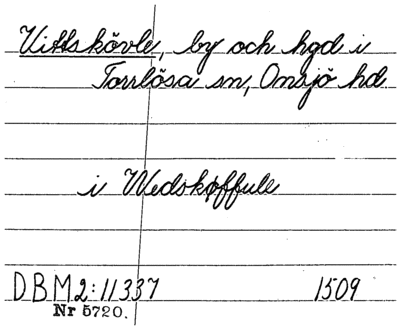 Vittskövle, by och hgd i
Torrlösa sn, Onsjö hd
i Wedskøffule
DBM2:11337 1509
Nr 5720.